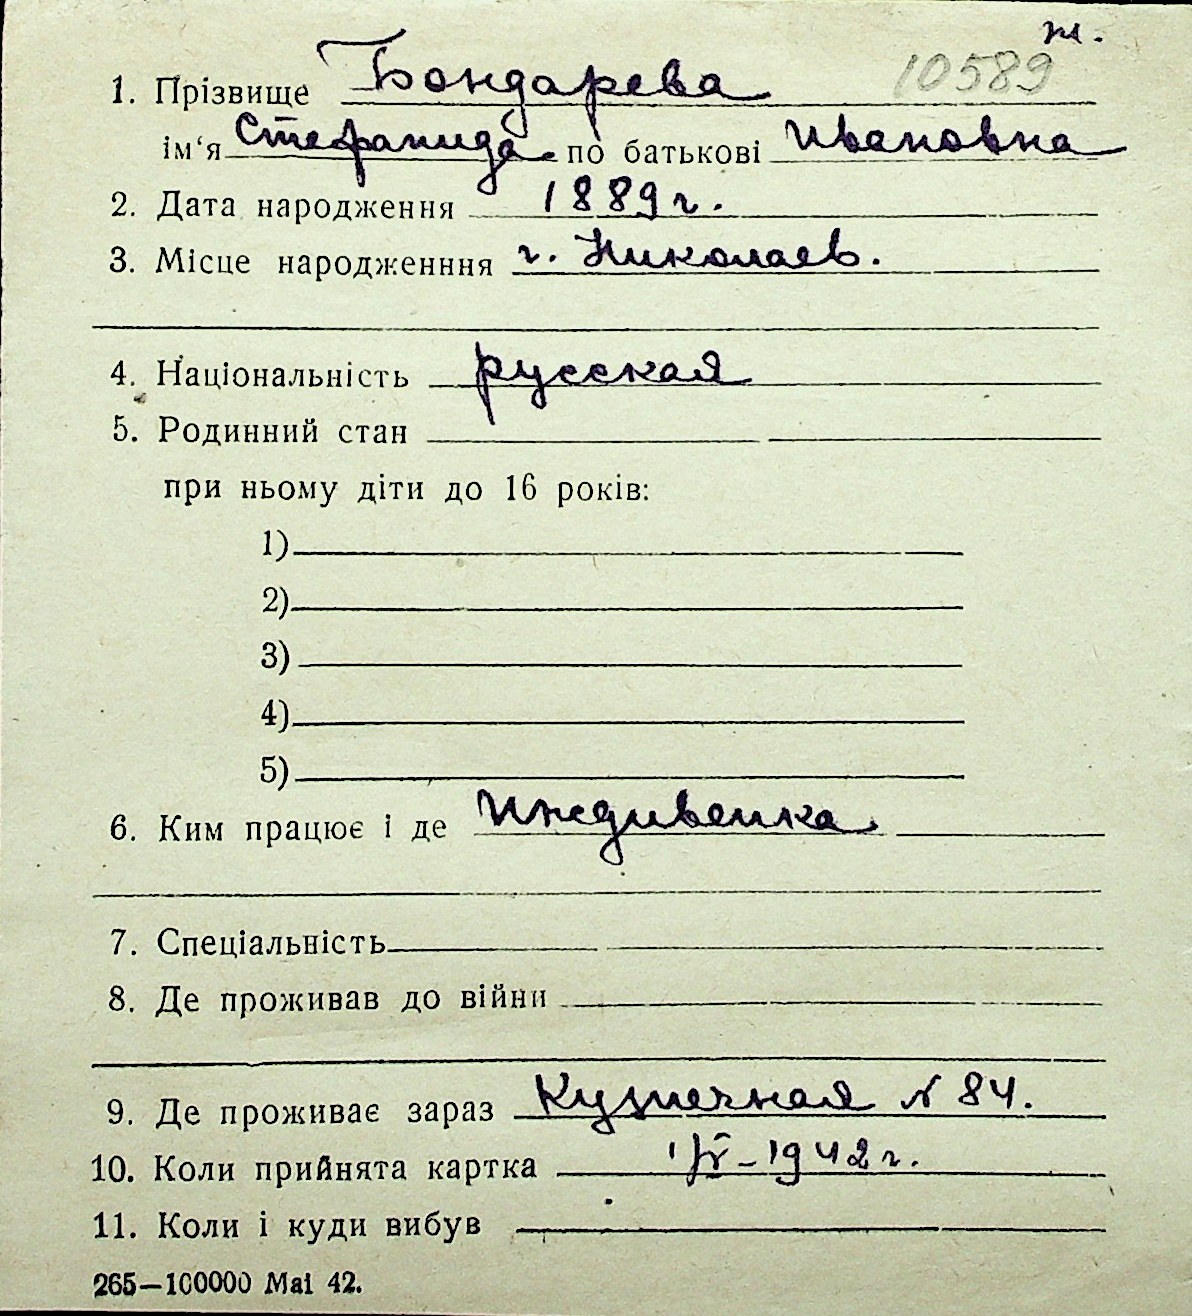 ж.
10589
1. Прізвище Бондарева
ім‘я Стефанида по батькові Ивановна
2. Дата народження 1889 г.
3. Місце народженння г. Николаев.
4. Національність русская
5. Родинний стан
при ньому діти до 16 років:
1)
2)
3)
4)
5)
6. Ким працює і де Иждивенка
7. Спеціальність
8. Де проживав до війни
9. Де проживає зараз Кузнечная № 84.
10. Коли прийнята картка 1/IV – 1942 г.
11. Коли і куди вибув
265—100000 Mai 42.